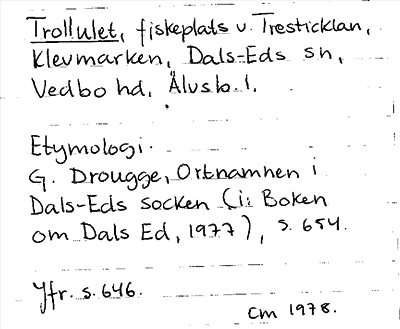 Trollulet, fiskeplats v. Tresticklan,
Klevmarken, Dals-Eds sn,
Vedbo hd, Älvsb. l.
Etymologi.
G. Drougge, Ortnamnen i
Dals-Eds socken (i: Boken
om Dals Ed, 1977), s. 654.
Jfr. s. 646.
CM 1978.